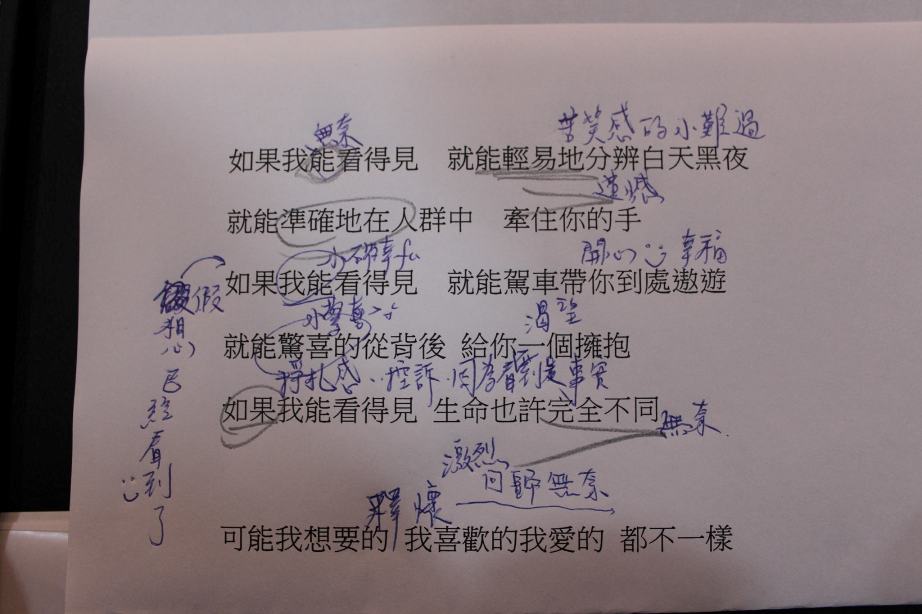 無奈 苦笑感的小難過
如果我能看得見 就能輕易地分辨白天黑夜
遺憾
就能準確地在人群中 牽住你的手
開心 幸福
如果我能看得見 就能駕車帶你到處遨遊
小驚喜 渴望
就能驚喜的從背後 給你一個擁抱
掙扎感 控訴 因為看到是事實
如果我能看得見 生命也許完全不同
無奈
激烈
回歸無奈
釋懷
可能我想要的 我喜歡的我愛的 都不一樣
假想已經看到了